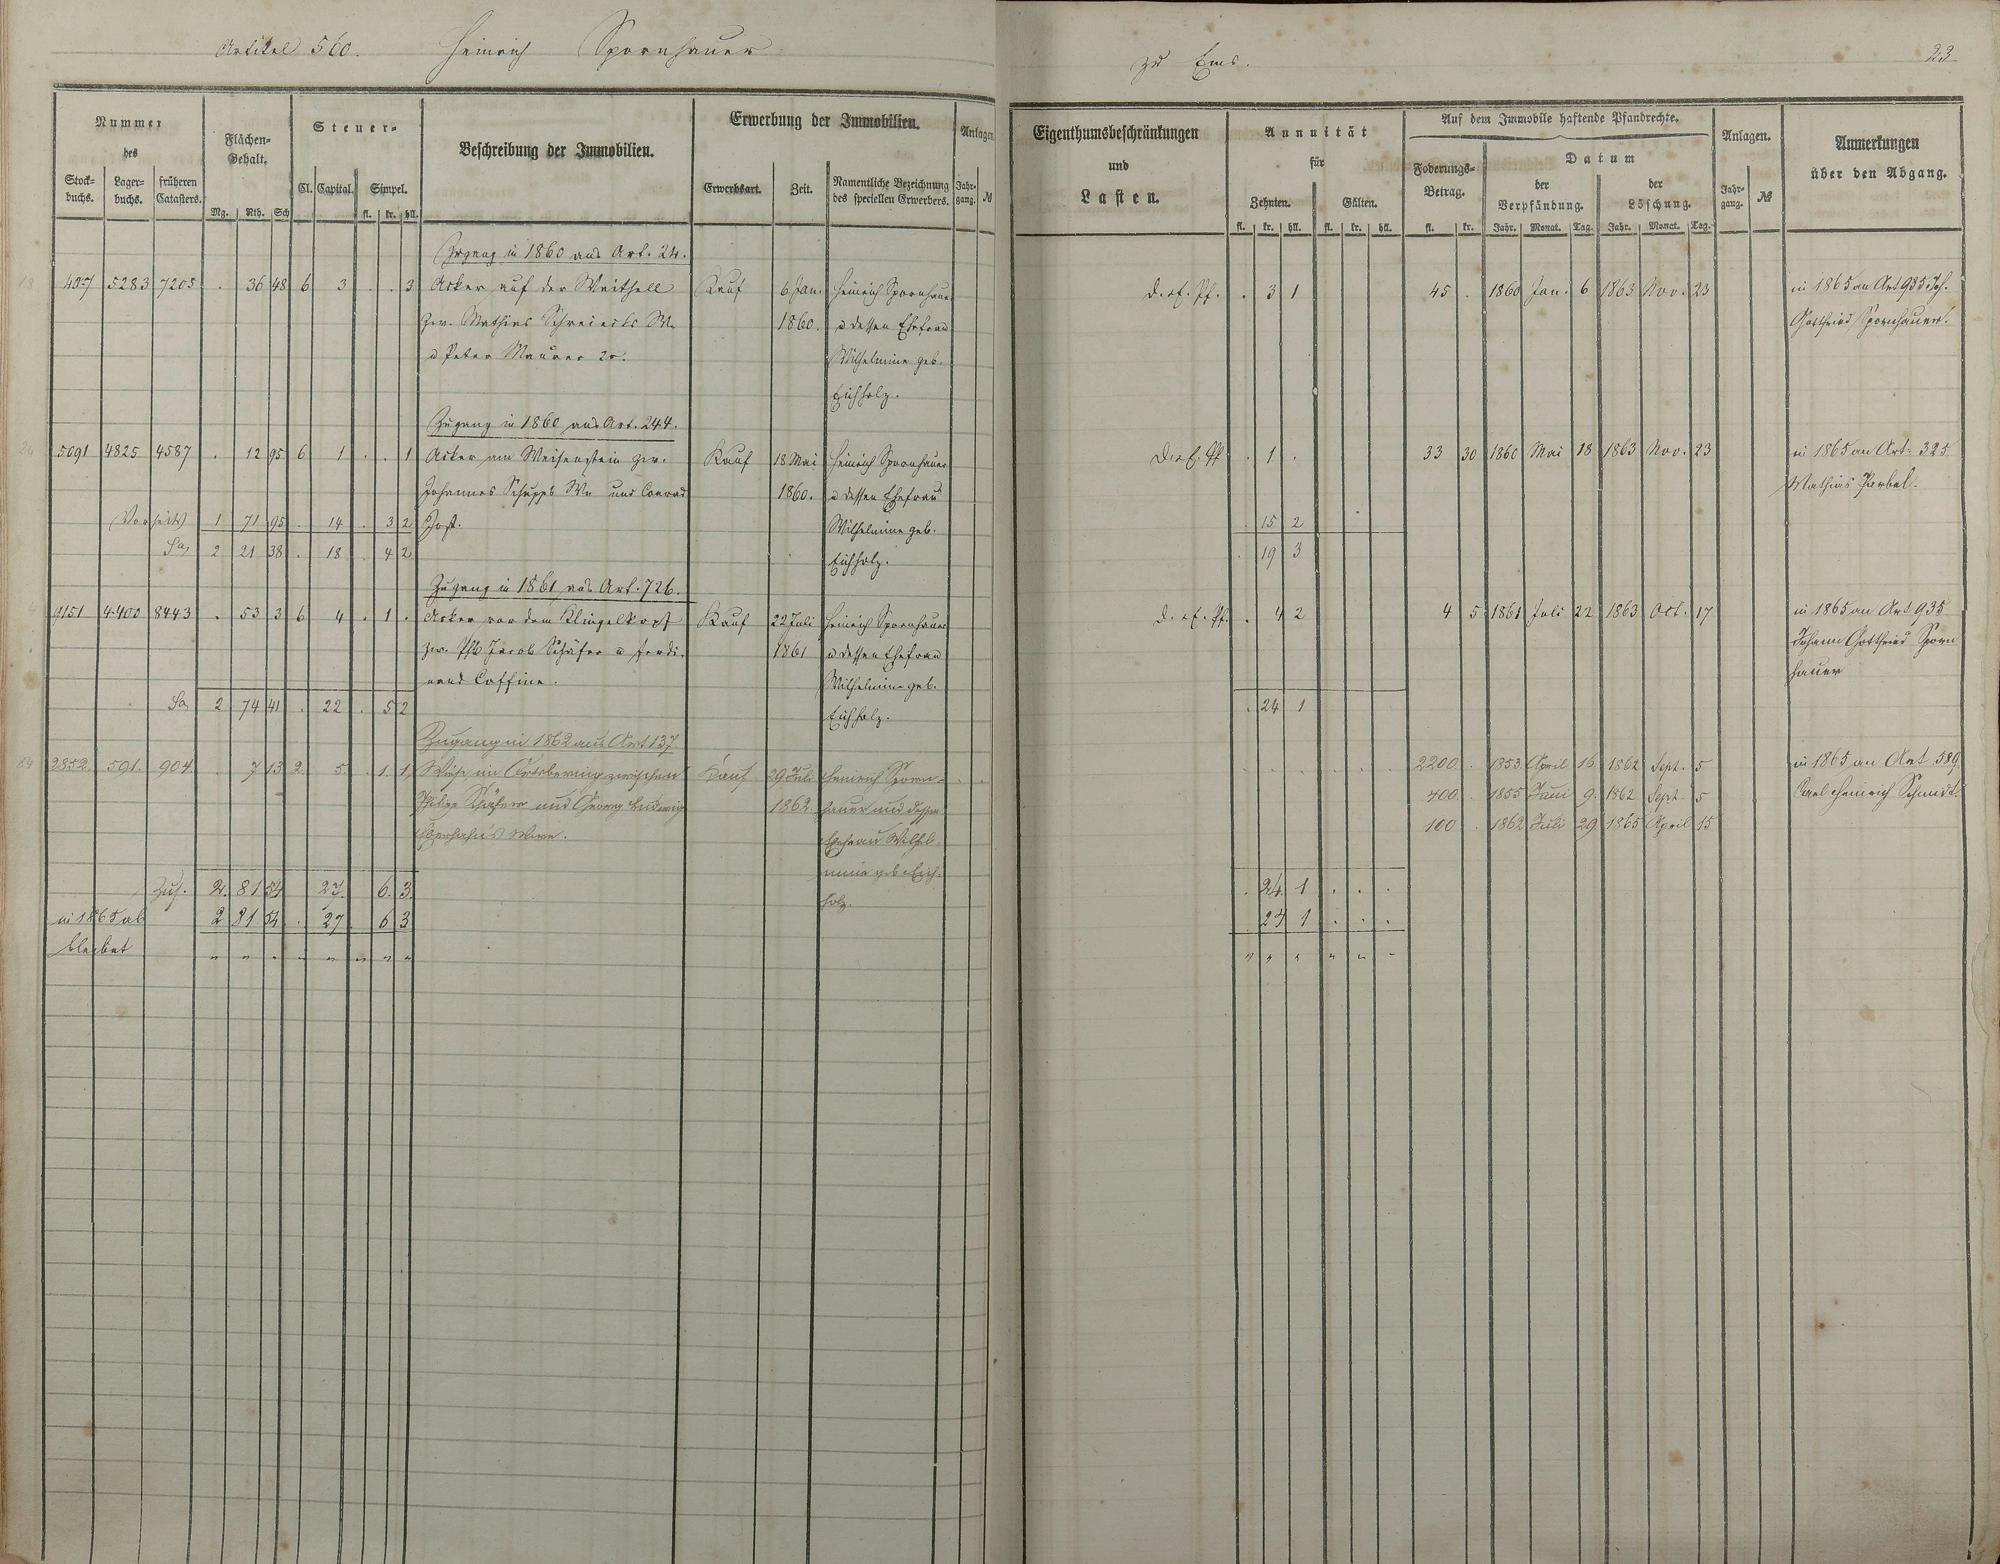 Artikel 560. Heinrich Spornhauer
zu Ems.
23
Nummer des
Stockbuchs. Lagerbuchs. früheren Catasters.
Flächen-Gehalt.
Mg. Rth. Sch
Steuer-
Cl. Capital. Simpel.
fl. kr. hll.
Beschreibung der Immobilien.
Erwerbung der Immobilien.
Erwerbsart. Zeit. Namentliche Bezeichnung des speciellen Erwerbers.
Anlagen
Jahrgang. №
Eigenthumsbeschränkungen
und
Lasten.
Annuität
für
Zehnten. Gülten.
fl. kr. hll. fl. kr. hll.
Auf dem Immobile haftende Pfandrechte.
Foderungs-Betrag.
fl. kr.
Datum
der Verpfändung. der Löschung.
Jahr. Monat. Tag. Jahr. Monat. Tag.
Anlagen.
Jahrgang. №
Anmerkungen
über den Abgang.
Zugang in 1860 aus Art. 24.
407 5283 7205 . 36 48 6 3 . . 3 Acker auf der Weithell Kauf 6 Jan. Heinrich Spornhauer d. et. Pf. . 3 1 45 . 1860 Jan. 6 1863 Nov. 23 in 1865 an Art 935 Joh.
zw. Mathias W. 1860. u dessen Ehefrau Gottfried Spornhauer.
u Peter Maurer 2r. Wilhelmine geb.
Eichholz.
Zugang in 1860 aus Art. 244.
5091 4825 4587 . 12 95 6 1 . . 1 Acker am Weisenstein zw. Kauf 18 Mai Heinrich Spornhauer d. et. Pf . 1 . 33 30 1860 Mai 18 1863 Nov. 23 in 1865 an Art. 325
Johannes Schupps We und Conrad 1860. u dessen Ehefrau Mathias
Vorseite 1 71 95 . 14 . 3 2 Jost. Wilhelmine geb. . 15 2
Sa 2 21 38 . 18 . 4 2 Eichholz. . 19 3
Zugang in 1861 aus Art. 726.
9151 4400 8443 . 53 3 6 4 . 1 . Acker vor dem Klingelkopf Kauf 22 Juli Heinrich Spornhauer d. et. Pf. . 4 2 4 5 1861 Juli 22 1863 Oct. 17 in 1865 an Art 935
zw. Phb Jacob Schäfer u Ferdi- 1861 u dessen Ehefrau Johann Gottfried Sporn
nand Coffine. Wilhelmine geb. hauer
Sa 2 74 41 . 22 . 5 2 Eichholz. . 24 1
Zugang in 1862 aus Art 137
2852. 591. 904 . 7 13 2. 5. . 1. 1 Wiese im zwischen Kauf 29 Juli Heinrich Sporn- 2200. . 1853. April 16. 1862 Sept. 5 in 1865 an Art 589
Philipp Schäfer und Georg Ludwig 1862. hauer und dessen 400. . 1855 Juni 9. 1862 Sept. 5 Carl Heinrich Schmidt.
Wwe. Ehefrau Wilhel- 100 . 1862 Juli 29. 1865 April 15
mine geb. Eich-
holz.
Zus. 2. 81 54 27. 6. 3. . 24. 1 . . .
in 1865 ab 2 81 54 . 27 . 6 3 24 1 . . .
bleibet " " " " " " " " " " " " " " "